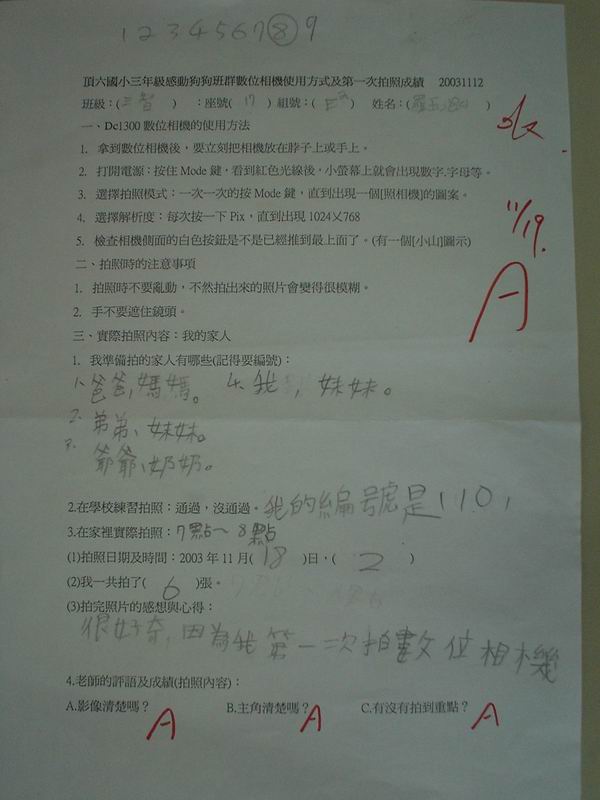 1 2 3 4 5 6 7 8 9
頂六國小三年級感動狗狗班群數位相機使用方式及第一次拍照成績 20031112
班級：(三智) ：座號(17) 組號：( ) 姓名：( )
一、Dc1300 數位相機的使用方法
1. 拿到數位相機後，要立刻把相機放在脖子上或手上。
2. 打開電源：按住 Mode 鍵，看到紅色光線後，小螢幕上就會出現數字.字母等。
3. 選擇拍照模式：一次一次的按 Mode 鍵，直到出現一個[照相機]的圖案。
4. 選擇解析度：每次按一下 Pix，直到出現 1024╳768
5. 檢查相機側面的白色按鈕是不是已經推到最上面了。(有一個[小山]圖示)
11/19.
A
二、拍照時的注意事項
1. 拍照時不要亂動，不然拍出來的照片會變得很模糊。
2. 手不要遮住鏡頭。
三、實際拍照內容：我的家人
1. 我準備拍的家人有哪些(記得要編號)：
1.爸爸,媽媽。 4.我，妹妹。
2.弟弟、妹妹。
3.爺爺、奶奶。
2.在學校練習拍照：通過，沒通過。我的編號是1101
3.在家裡實際拍照：7點～8點
(1)拍照日期及時間：2003 年 11 月(18)日，(2)
(2)我一共拍了(6)張。
(3)拍完照片的感想與心得：
很好奇,因為我第一次拍數位相機
4.老師的評語及成績(拍照內容)：
A.影像清楚嗎？A B.主角清楚嗎？A C.有沒有拍到重點？A